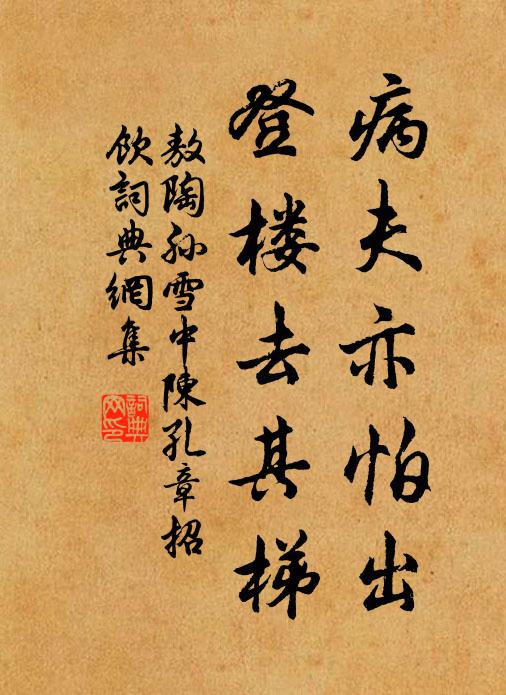 病夫亦怕出
登楼去其梯
敖陶孙雪中陳孔章招
飲詞典網集
詞典网印